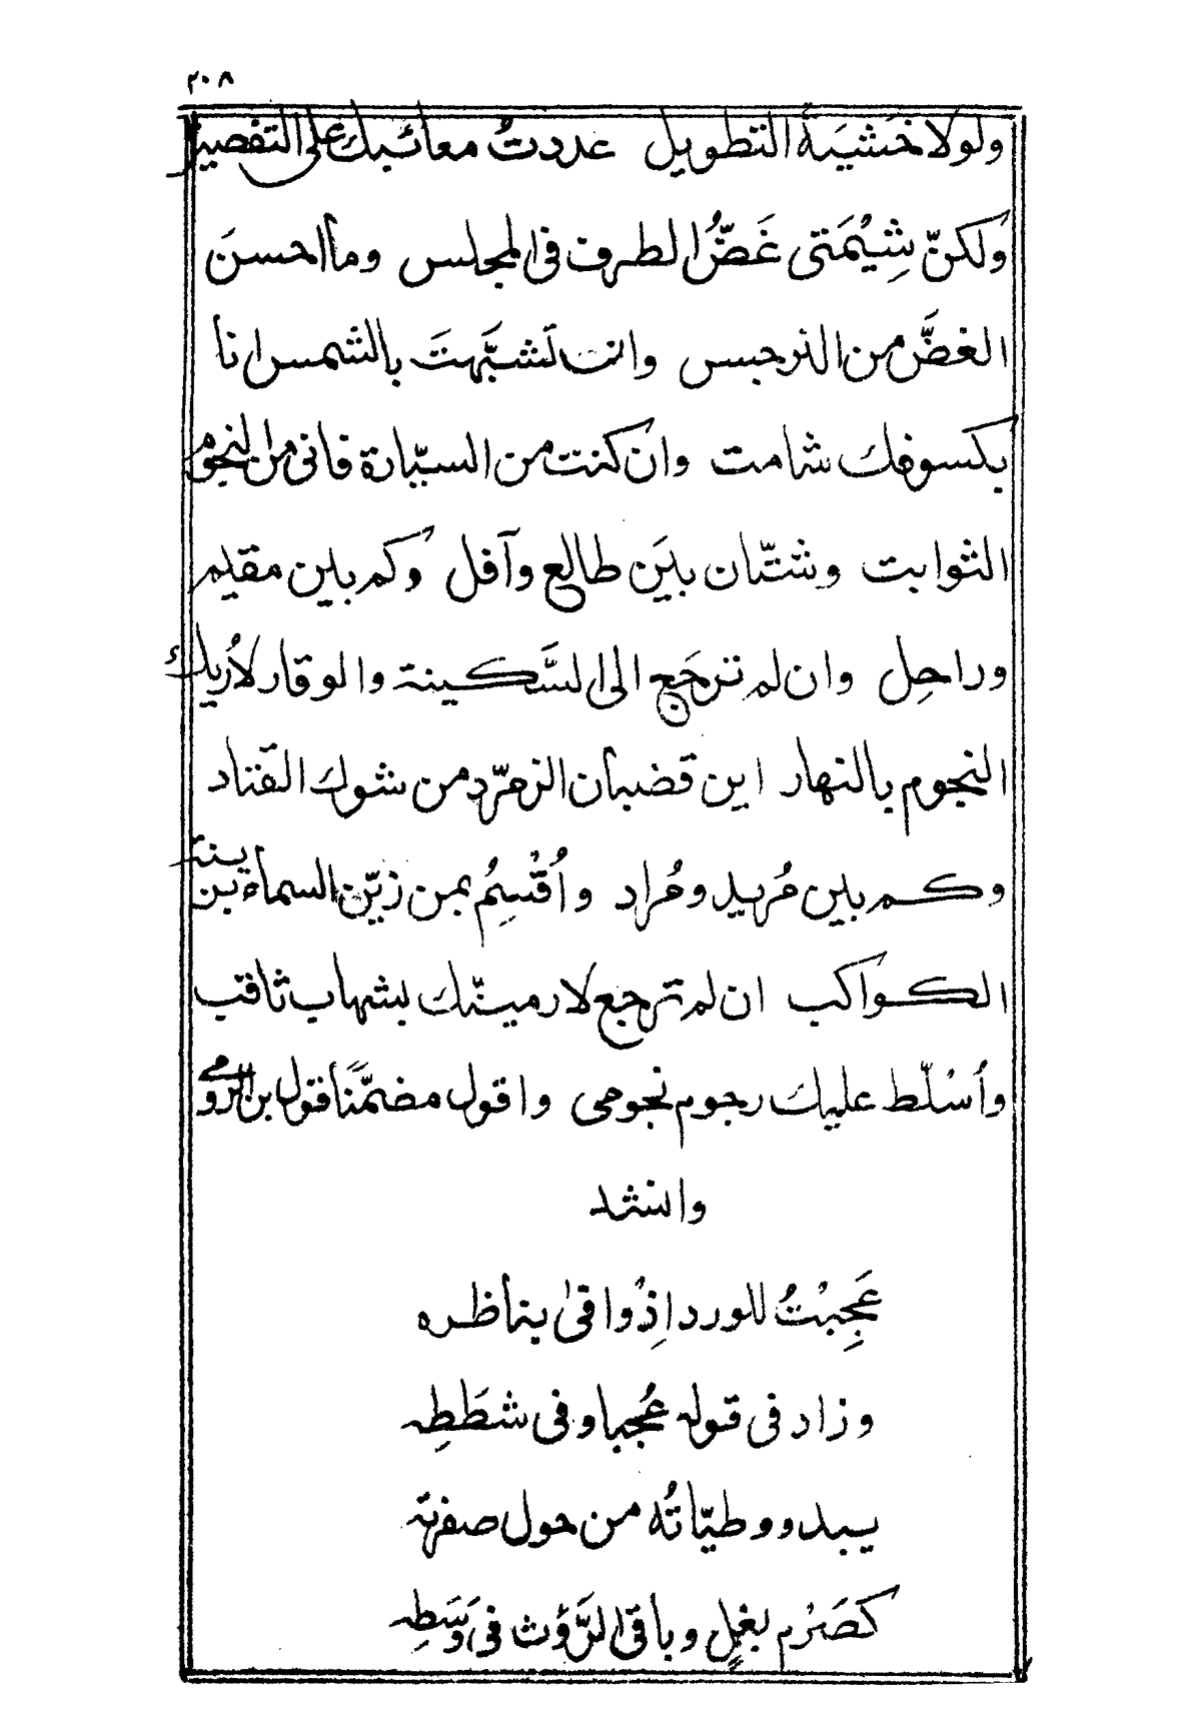 ٢٠٨
ولولا خَشيَة التطويل عددتُ معائبك على التفصيل
ولكنّ شِيْمَتى غَضُّ الطرف فى المجلس وما احسنَ
الغضَّ من النرجس وانت تَشبَّهتَ بالشمس انا
بكسوفك شامت وان كنت من السيّارة فانى من النجوم
الثوابت وشتّان بيَن طالع وآفل وكم بين مقيم
وراحِل وان لم ترجَع الى السَّكينة والوقار لأُريك
النجوم بالنهار اين قضبان الزمرّد من شوك القَتاد
وكم بين مُريد ومُراد واُقْسِمُ بمن زيّن السماء بزينة
الكواكب ان لم ترجع لارمينّك بشهاب ثاقب
واُسْلّط عليك رجوم نجومى واقول مضمّنًا قول بن الرومى
وانشد
عَجِبْتُ للورد اِذْ وافىٰ بناظره
وزاد فى قوله عُجبا وفى شطَطِه
يبدو وطيّاتُه من حول صفرته
كصَرْم بغلٍ وباقى الرَّوْث فى وَسَطِه